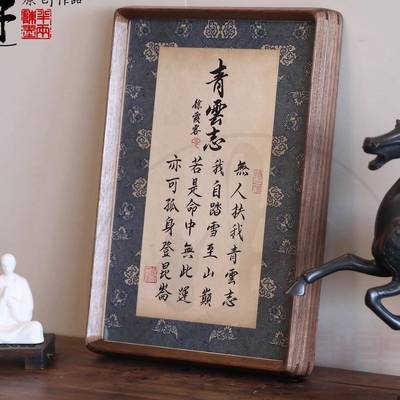 原创作品
青雲志
徐霞客
無人扶我青雲志
我自踏雪至山巔
若是命中無此運
亦可孤身登崑崙